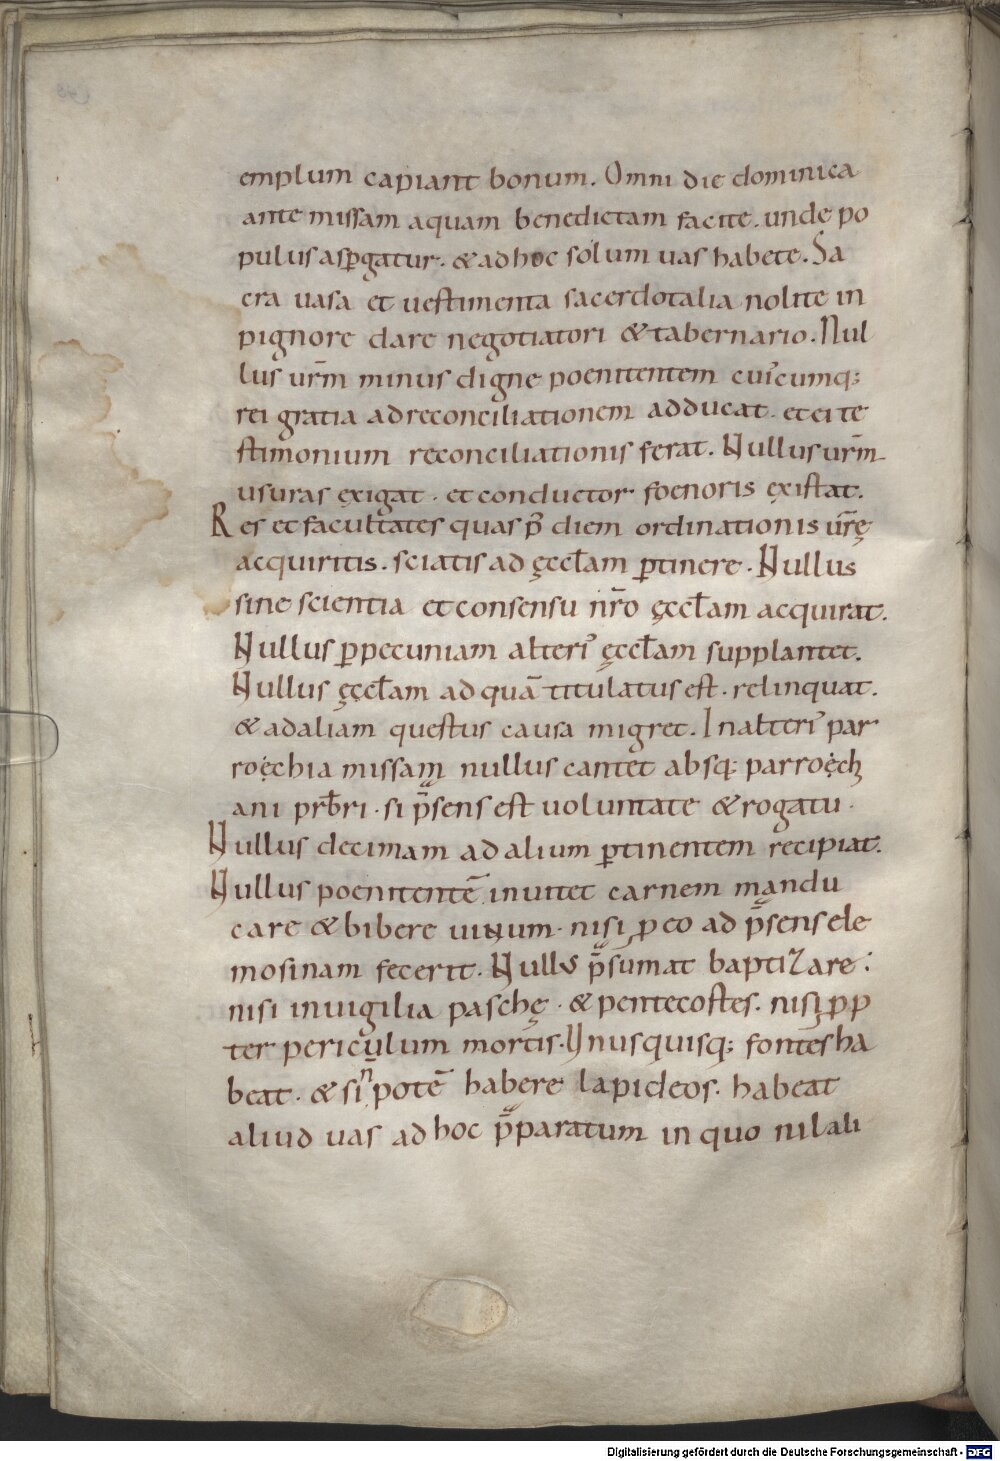 emplum capiant bonum. Omni die dominica
ante missam aquam benedictam facite. unde po
pulus asꝑgatur. & ad hoc solum uas habete. Sa
cra uasa et uestimenta sacerdotalia nolite in
pignore dare negotiatori & tabernario. Nul
lus ur̄m minus digne poenitentem cuiuscumq;
rei gratia ad reconciliationem adducat. et ei te
stimonium reconciliationis ferat. Nullus ur̄m
usuras exigat. et conductor foenoris existat.
Res et facultates quas p̄ diem ordinationis ur̄ę
acquiritis. sciatis ad ęccl̄am ꝑtinere. Nullus
sine scientia et consensu nr̄o ęccl̄am acquirat.
Nullus ꝑ pecuniam alteri᾽ ęccl̄am supplantet.
Nullus ęccl̄am ad quā titulatus est. relinquat.
& ad aliam questus causa migret. In alteri᾽ par
roęchia missam nullus cantet absq; parroęch
ani prb̄ri. si p̄sens est uoluntate & rogatu.
Nullus decimam ad alium ꝑtinentem recipiat.
Nullus poenitentē inuitet carnem mandu
care & bibere uinum. nisi ꝓ eo ad p̄sens ele
mosinam fecerit. Nullus p̄sumat baptizare.
nisi in uigilia paschę. & pentecostes. nisi ꝓp
ter periculum mortis. Unusquisq; fontes ha
beat. & si n̄ potē habere lapideos. habeat
aliud uas ad hoc p̄paratum in quo nil ali
Digitalisierung gefördert durch die Deutsche Forschungsgemeinschaft - DFG